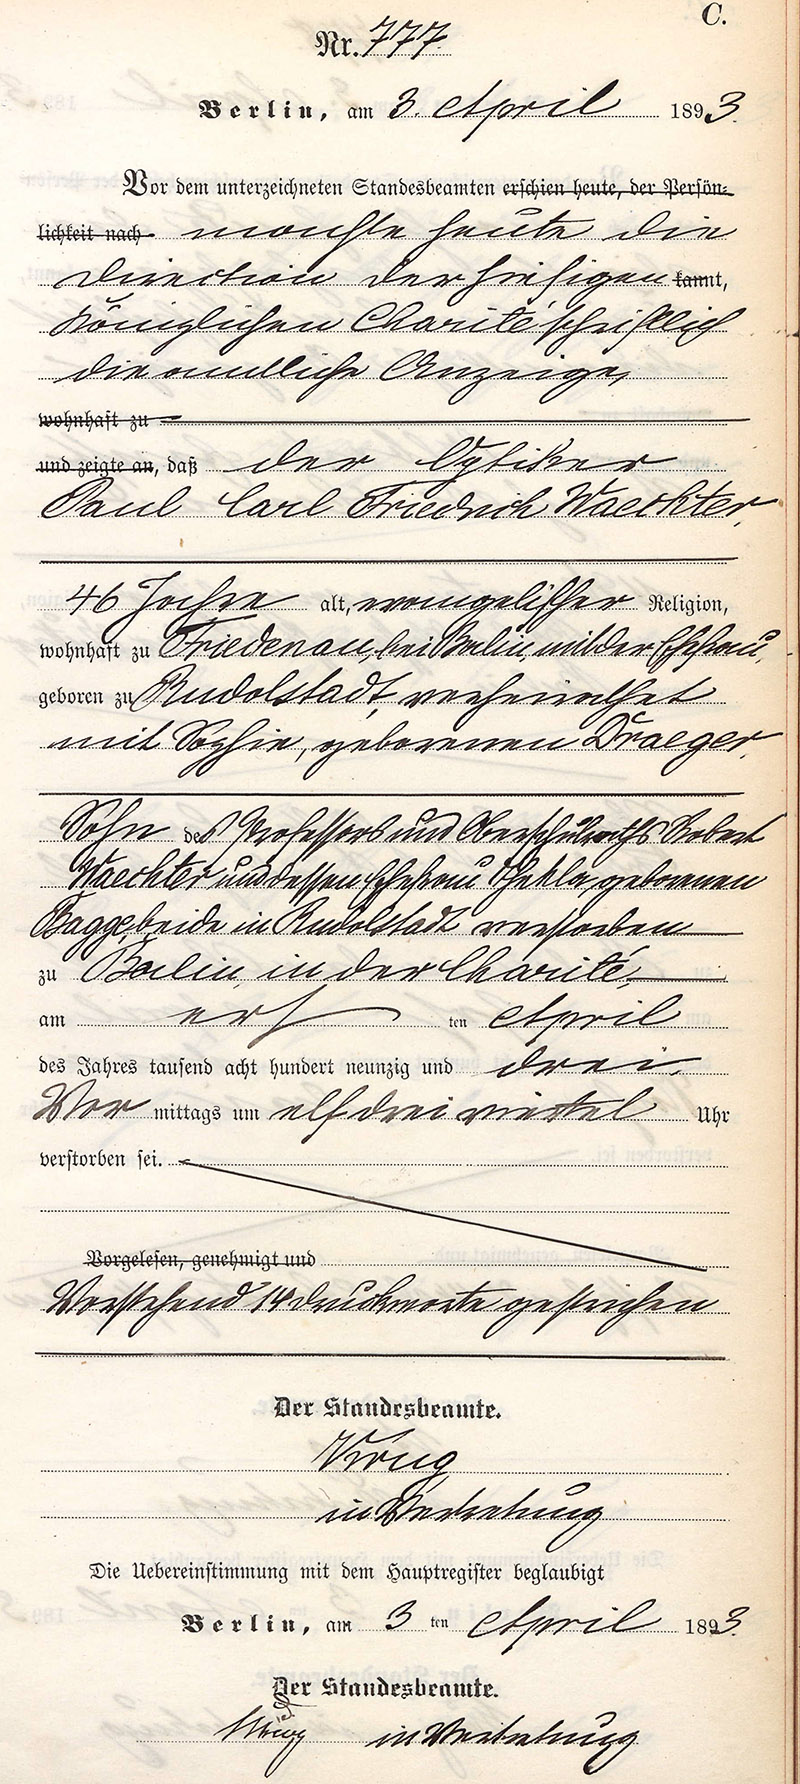 C.
Nr. 777.
Berlin, am 3. April 1893.
Vor dem unterzeichneten Standesbeamten erschien heute, der Persön-
lichkeit nach machte heute die
Direction der hiesigen kannt,
Königlichen Charité schriftlich
die amtliche Anzeige,
wohnhaft zu
und zeigte an, daß der Optiker
Paul Carl Friedrich Waechter,
46 Jahre alt, evangelischer Religion,
wohnhaft zu Friedenau, bei Berlin, mit der Ehefrau,
geboren zu Rudolstadt, verheirathet
mit Sophie, geborenen Draeger,
Sohn des Professors und Oberschulraths Robert
Waechter und dessen Ehefrau Thekla, geborenen
Bagge, beide in Rudolstadt verstorben
zu Berlin in der Charité,
am ersten April
des Jahres tausend acht hundert neunzig und drei,
Vor mittags um elf drei viertel Uhr
verstorben sei.
Vorgelesen, genehmigt und
Vorstehend 14 Druckworte gestrichen
Der Standesbeamte.
Krug
in Vertretung
Die Uebereinstimmung mit dem Hauptregister beglaubigt
Berlin, am 3 ten April 1893.
Der Standesbeamte.
Krug in Vertretung